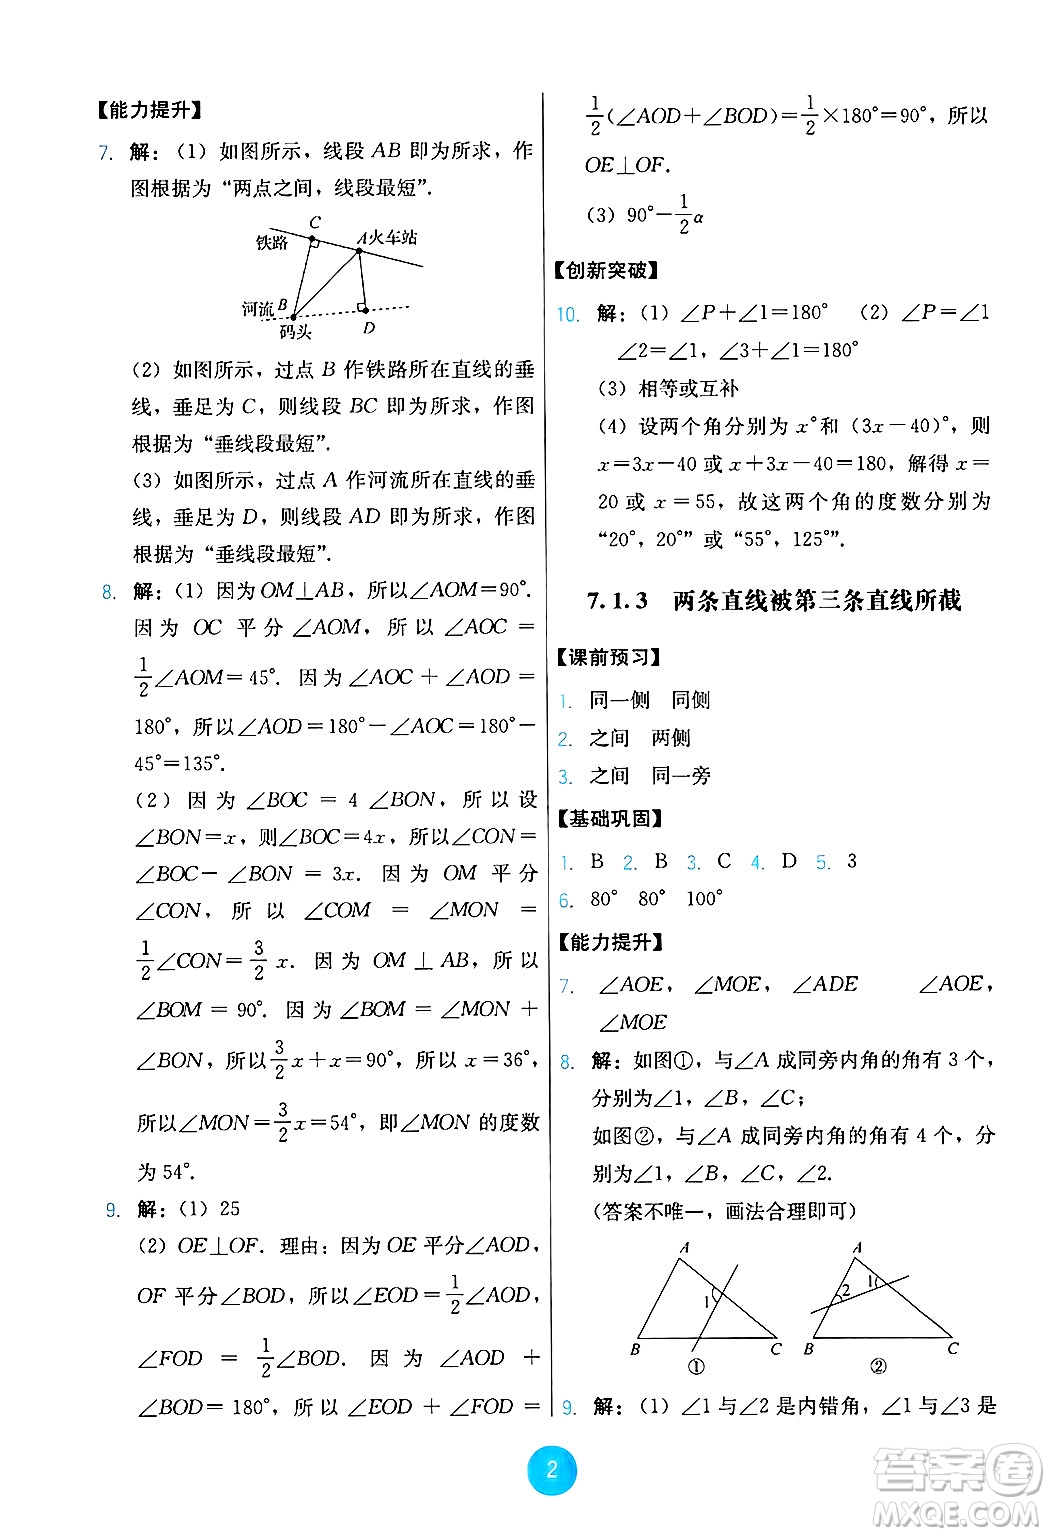 【能力提升】
7. 解：（1）如图所示，线段 AB 即为所求，作
图根据为“两点之间，线段最短”.
C
铁路
A火车站
河流
B
码头
D
（2）如图所示，过点 B 作铁路所在直线的垂
线，垂足为 C，则线段 BC 即为所求，作图
根据为“垂线段最短”.
（3）如图所示，过点 A 作河流所在直线的垂
线，垂足为 D，则线段 AD 即为所求，作图
根据为“垂线段最短”.
8. 解：（1）因为 OM⊥AB，所以∠AOM=90°.
因为 OC 平分∠AOM，所以∠AOC=
1/2∠AOM=45°. 因为∠AOC+∠AOD=
180°，所以∠AOD=180°-∠AOC=180°-
45°=135°.
（2）因为∠BOC=4∠BON，所以设
∠BON=x，则∠BOC=4x，所以∠CON=
∠BOC-∠BON=3x. 因为 OM 平分
∠CON，所以∠COM=∠MON=
1/2∠CON=3/2 x. 因为 OM⊥AB，所以
∠BOM=90°. 因为∠BOM=∠MON+
∠BON，所以3/2 x+x=90°，所以 x=36°，
所以∠MON=3/2 x=54°，即∠MON的度数
为 54°.
9. 解：（1）25
（2）OE⊥OF. 理由：因为 OE 平分∠AOD，
OF 平分∠BOD，所以∠EOD=1/2∠AOD，
∠FOD=1/2∠BOD. 因为∠AOD+
∠BOD=180°，所以∠EOD+∠FOD=
1/2(∠AOD+∠BOD)=1/2×180°=90°，所以
OE⊥OF.
（3）90°-1/2α
【创新突破】
10. 解：（1）∠P+∠1=180° （2）∠P=∠1
∠2=∠1，∠3+∠1=180°
（3）相等或互补
（4）设两个角分别为 x°和（3x-40）°，则
x=3x-40 或 x+3x-40=180，解得 x=
20 或 x=55，故这两个角的度数分别为
“20°，20°”或“55°，125°”.
7.1.3 两条直线被第三条直线所截
【课前预习】
1. 同一侧 同侧
2. 之间 两侧
3. 之间 同一旁
【基础巩固】
1. B 2. B 3. C 4. D 5. 3
6. 80° 80° 100°
【能力提升】
7. ∠AOE，∠MOE，∠ADE ∠AOE，
∠MOE
8. 解：如图①，与∠A 成同旁内角的角有 3 个，
分别为∠1，∠B，∠C；
如图②，与∠A 成同旁内角的角有 4 个，分
别为∠1，∠B，∠C，∠2.
（答案不唯一，画法合理即可）
A
1
B
C
①
A
2
1
B
C
②
9. 解：（1）∠1与∠2是内错角，∠1与∠3是
2
答案圈
MXQE.COM